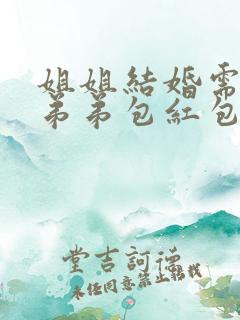 姐姐結婚需
弟弟包紅包
堂吉訶德
同意禁止